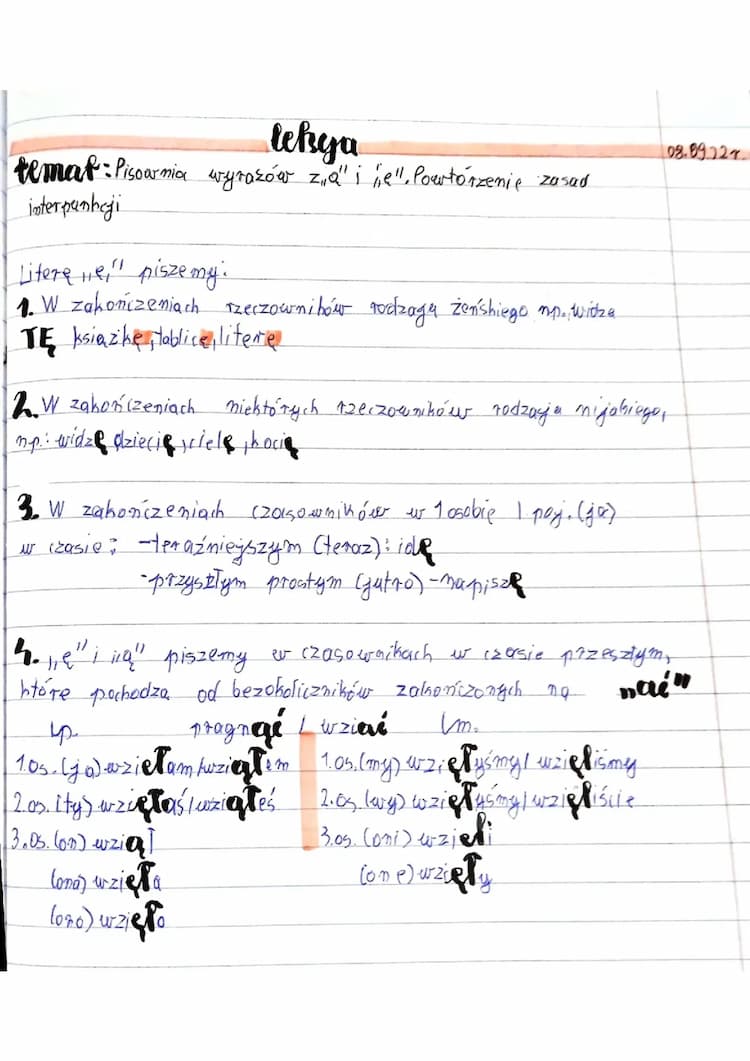 lekcja
08.09.22r.
temat: Pisownia wyrazów z „ą" i „ę". Powtórzenie zasad
interpunkcji
Literę „ę" piszemy:
1. W zakończeniach rzeczowników rodzaju żeńskiego np. widzę
TĘ książkę, tablicę, literę
2. W zakończeniach niektórych rzeczowników rodzaju nijakiego,
np.: widzę dziecię, cielę, kocię
3. W zakończeniach czasowników w 1 osobie l poj. (ja)
w czasie: -teraźniejszym (teraz): idę
-przyszłym prostym (jutro) - napiszę
4. „ę" i „ą" piszemy w czasownikach w czasie przeszłym,
które pochodzą od bezokoliczników zakończonych na „ąć"
lp. pragnąć / wziąć lm.
1.os. (ja) wzięłam/wziąłem 1.os. (my) wzięłyśmy/ wzięliśmy
2.os. (ty) wzięłaś/wziąłeś 2.os. (wy) wzięłyśmy/wzięliście
3.os. (on) wziął 3.os. (oni) wzięli
(ona) wzięła (one) wzięły
(ono) wzięło